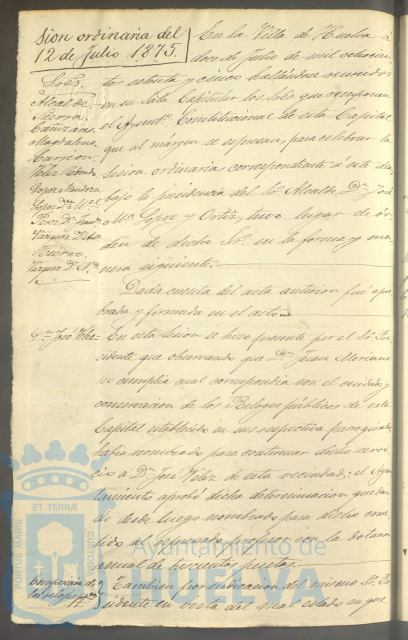 sion ordinaria del
12 de Julio 1875.
Sres.
Alcalde
Sierra
Cañizares
Magdaleno
Garzon
Velez
Lopez
Perez
Vazquez
En la Villa de Huelva a
doce de Julio de mil ochocien
tos setenta y cinco hallandose reunidos
en su Sala Capitular los Sres que componen
el Ayuntº Constitucional de esta Capital
que al márgen se espresan, para celebrar la
sesion ordinaria correspondiente á este dia
bajo la presidencia del Sr Alcalde Dn José
Mª Lopez y Ortiz, tuvo lugar de ór
den de dicho Sr. en la forma y ma
nera siguiente.
Dada cuenta del acta anterior fué apro
bada y firmada en el acto
Dn José Velez
En esta sesion se hizo presente por el Sr Pre
sidente que observando que Dn Juan Moriano
no cumplia cual correspondia con el cuidado y
conservacion de los Relojes públicos de esta
Capital establecidos en sus respectivas parroquias,
habia nombrado para continuar dicho servi
cio a Dn José Velez de esta vecindad: el Ayun
tamiento aprobó dicha determinacion quedan
do desde luego nombrado para dicho come
tido el espresado profesor con la dotacion
anual de pesetas.
Composicion de
los relojes
Tambien por indicacion del mismo Sr Pre
sidente en vista del mal estado en que
ET TERRÆ
PORTUS MARIS
CUSTODIA
Ayuntamiento de
HUELVA